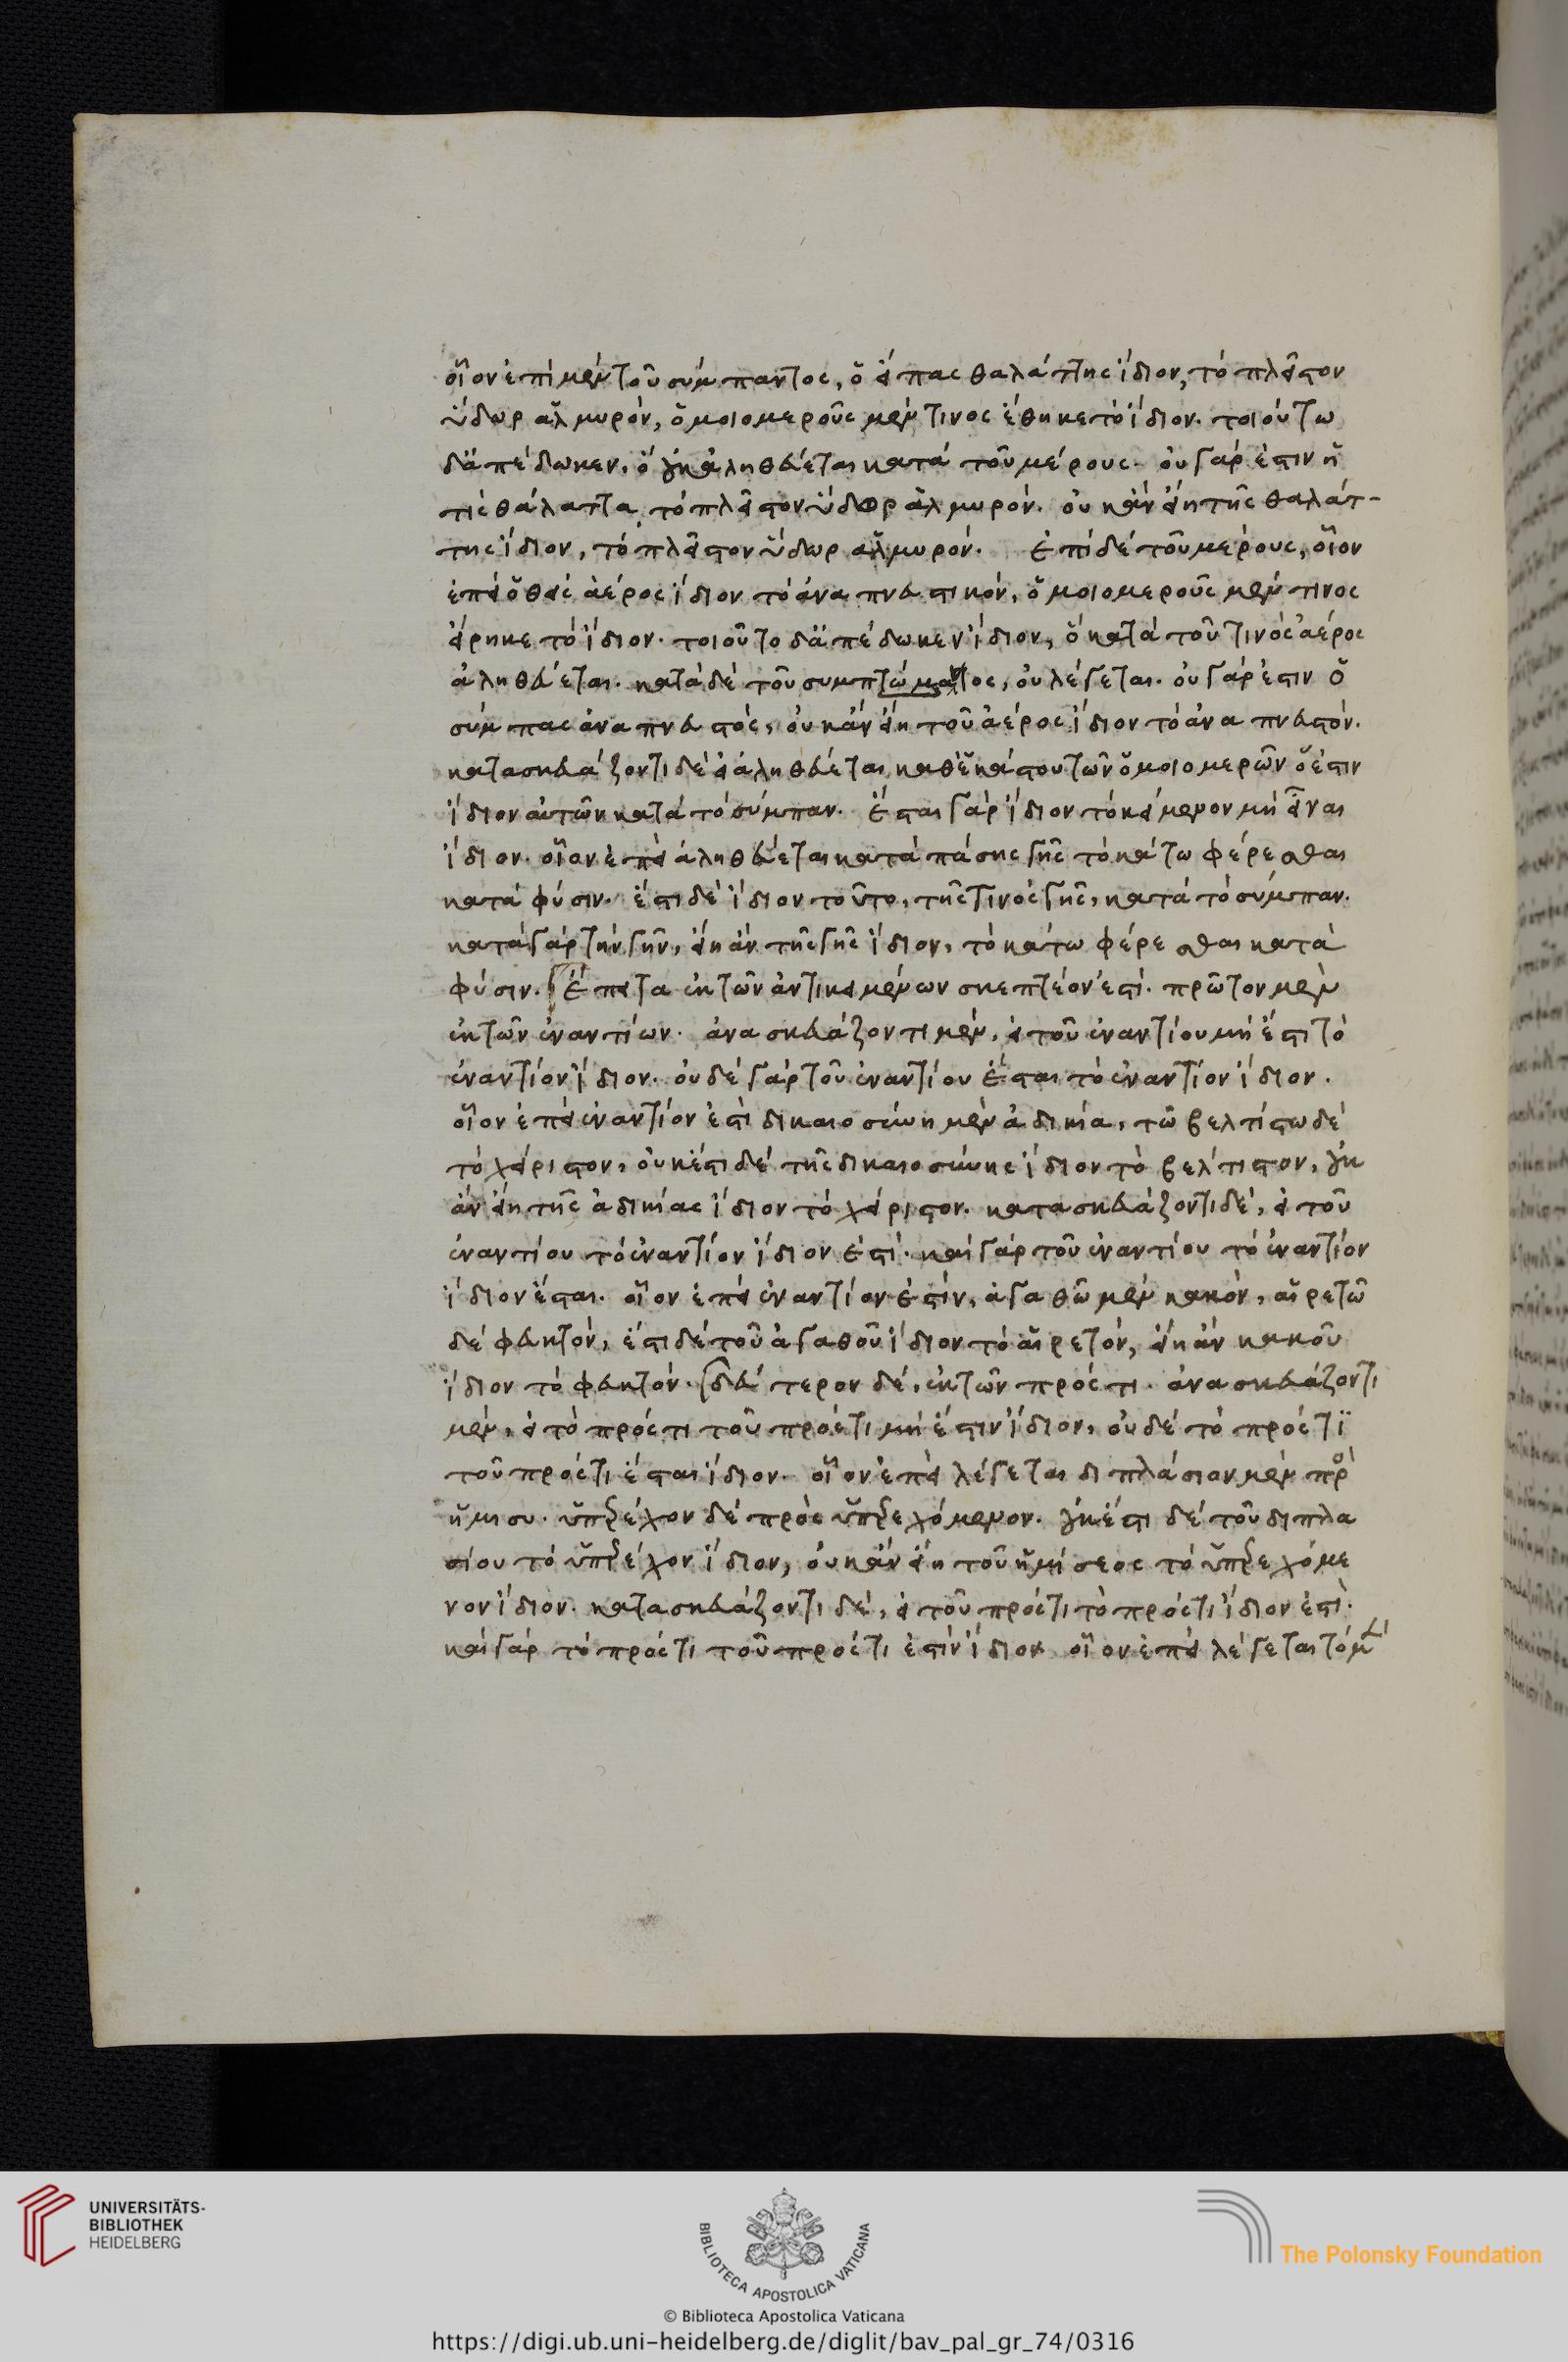 οἷον ἐπὶ μὲν τοῦ σύμπαντος, ὁ εἴπας θαλάττης ἴδιον, τὸ πλεῖστον
ὕδωρ ἁλμυρόν, ὁμοιομεροῦς μέν τινος ἔθηκε τὸ ἴδιον. τοιούτω
δ' ἀπέδωκεν, ὃ οὐκ ἀληθεύεται κατὰ τοῦ μέρους. οὐ γάρ ἐστιν ἥ
τις θάλαττα, τὸ πλεῖστον ὕδωρ ἁλμυρόν. οὐκ ἂν εἴη τῆς θαλάτ-
της ἴδιον, τὸ πλεῖστον ὕδωρ ἁλμυρόν. Ἐπὶ δὲ τοῦ μέρους, οἷον
ἐπεὶ ὁ θεὶς ἀέρος ἴδιον τὸ ἀναπνευστικόν, ὁμοιομεροῦς μέν τινος
εἴρηκε τὸ ἴδιον. τοιοῦτο δ' ἀπέδωκεν ἴδιον, ὃ κατὰ τοῦ τινὸς ἀέρος
ἀληθεύεται. κατὰ δὲ τοῦ συμπτώματος, οὐ λέγεται. οὐ γάρ ἐστιν ὁ
σύμπας ἀναπνευστός, οὐκ ἂν εἴη τοῦ ἀέρος ἴδιον τὸ ἀναπνευστόν.
κατασκευάζοντι δὲ εἰ ἀληθεύεται καθ' ἑκάστου τῶν ὁμοιομερῶν ὅ ἐστιν
ἴδιον αὐτῶν κατὰ τὸ σύμπαν. Ἔσται γὰρ ἴδιον τὸ κείμενον μὴ εἶναι
ἴδιον. οἷον ἐπεὶ ἀληθεύεται κατὰ πάσης γῆς τὸ κάτω φέρεσθαι
κατὰ φύσιν. ἔστι δὲ ἴδιον τοῦτο, τῆς τινὸς γῆς, κατὰ τὸ σύμπαν.
κατὰ γὰρ τὴν γῆν, εἴη ἂν τῆς γῆς ἴδιον, τὸ κάτω φέρεσθαι κατὰ
φύσιν. Ἔπειτα ἐκ τῶν ἀντικειμένων σκεπτέον ἐστί. πρῶτον μὲν
ἐκ τῶν ἐναντίων. ἀνασκευάζοντι μέν, εἰ τοῦ ἐναντίου μή ἐστι τὸ
ἐναντίον ἴδιον. οὐδὲ γὰρ τοῦ ἐναντίου ἔσται τὸ ἐναντίον ἴδιον.
οἷον ἐπεὶ ἐναντίον ἐστὶ δικαιοσύνη μὲν ἀδικία, τῶ βελτίστω δὲ
τὸ χείριστον, οὐκ ἔστι δὲ τῆς δικαιοσύνης ἴδιον τὸ βέλτιστον, οὐκ
ἂν εἴη τῆς ἀδικίας ἴδιον τὸ χείριστον. κατασκευάζοντι δέ, εἰ τοῦ
ἐναντίου τὸ ἐναντίον ἴδιον ἐστί. καὶ γὰρ τοῦ ἐναντίου τὸ ἐναντίον
ἴδιον ἔσται. οἷον ἐπεὶ ἐναντίον ἐστίν, ἀγαθῶ μὲν κακόν, αἱρετῶ
δὲ φευκτόν, ἔστι δὲ τοῦ ἀγαθοῦ ἴδιον τὸ αἱρετόν, εἴη ἂν κακοῦ
ἴδιον τὸ φευκτόν. δεύτερον δέ, ἐκ τῶν πρός τι. ἀνασκευάζοντι
μέν, εἰ τὸ πρός τι τοῦ πρός τι μή ἐστιν ἴδιον, οὐδὲ τὸ πρός τι
τοῦ πρός τι ἔσται ἴδιον. οἷον ἐπεὶ λέγεται διπλάσιον μὲν πρὸς
ἥμισυ. ὑπερέχον δὲ πρὸς ὑπερεχόμενον. οὐκ ἔστι δὲ τοῦ διπλα
σίου τὸ ὑπερέχον ἴδιον, οὐκ ἂν εἴη τοῦ ἡμίσεος τὸ ὑπερεχόμε
νον ἴδιον. κατασκευάζοντι δέ, εἰ τοῦ πρός τι τὸ πρός τι ἴδιον ἐστί.
καὶ γὰρ τὸ πρός τι τοῦ πρός τι ἐστὶν ἴδιον οἷον ἐπεὶ λέγεται τὸ μὲν
UNIVERSITÄTS-
BIBLIOTHEK
HEIDELBERG
BIBLIOTECA APOSTOLICA VATICANA
The Polonsky Foundation
© Biblioteca Apostolica Vaticana
https://digi.ub.uni-heidelberg.de/diglit/bav_pal_gr_74/0316